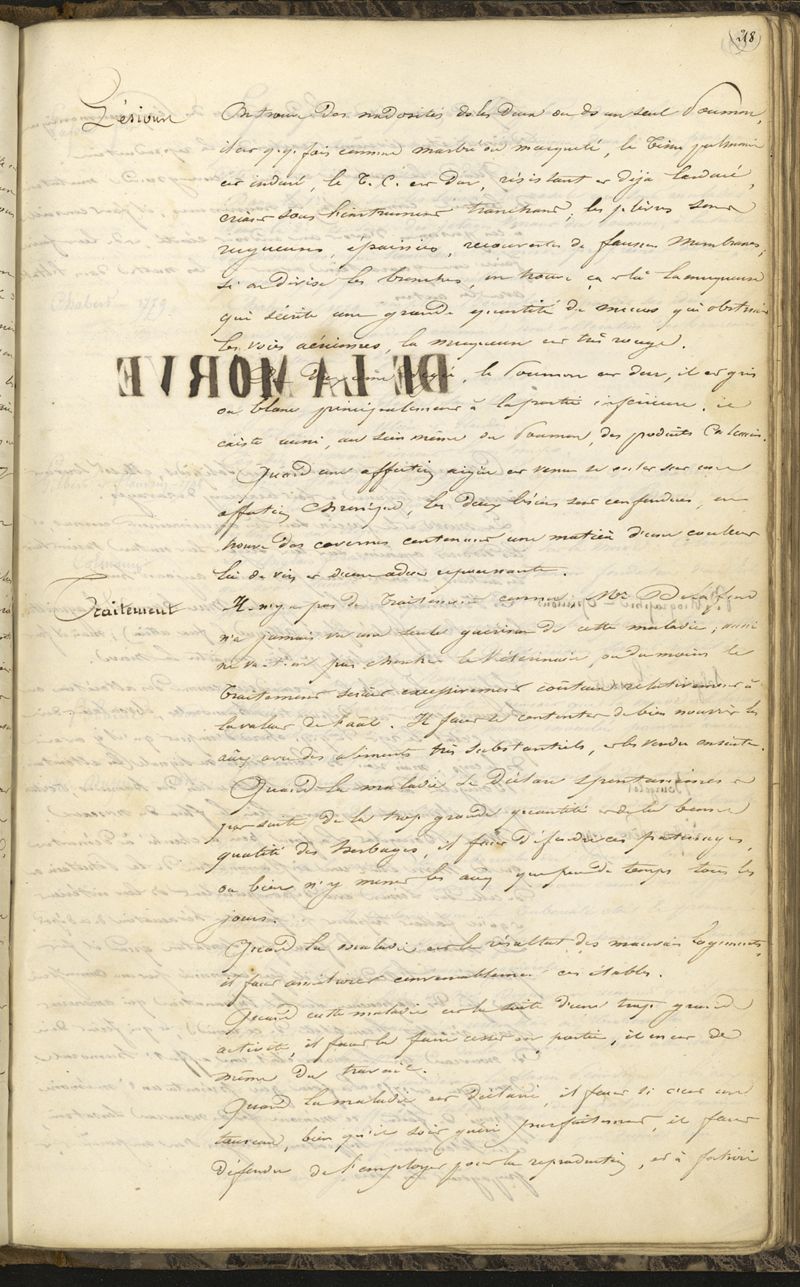 218
Lésions
On trouve des nodosités ds les deux ou ds un seul Poumon,
il est q.q. fois comme marbré ou marqueté, le tissu pulmonaire
est induré, le T. C. est dur, résistant et déjà lardacé,
criant sous l'instrument tranchant; les plèvres sont
rugueuses, épaissies, recouvertes de fausses membranes;
si on divise les bronches, on trouve ça et là la muqueuse
qui sécrète une grande quantité de mucus qui obstrue
les voies aériennes, la muqueuse est très rouge.
DE LA MORVE
le Poumon est dur, il est gris
ou blanc principalement à la partie inférieure. il
existe aussi, au sein même du Poumon, des produits Calcaires.
Quand une affection aigüe est venue se enter sur une
affection chronique, les deux lésions sont confondues, on
trouve des cavernes contenant une matière d'une couleur
lie de vin et d'une odeur repoussante.
Traitement
Il n'y a pas de traitement connu. Mr Delafond
n'a jamais vu une seule guérison de cette maladie; aussi
ne va-t-on pas chercher le Vétérinaire, ou du moins le
traitement serait excessivement coûteux relativement à
la valeur de l'aal. Il faut se contenter de bien nourrir les
aux avec des aliments très substantiels, et les vendre ensuite.
Quand la maladie se déclare spontanément et
par suite de la trop grande quantité et de la bonne
qualité des herbages, il faut défendre ces pâturages,
ou bien n'y mener les aux que peu de temps tous les
jours.
Quand la maladie est le résultat des mauvais logements,
il faut améliorer convenablement ces étables.
Quand cette maladie est la suite d'une trop grande
activité, il faut la faire cesser en partie, il en est de
même du travail.
Quand la maladie est déclarée, il faut si c'est un
taureau, bien qu'il soit guéri parfaitement, il faut
défendre de l'employer pour la reproduction, et à fortiori